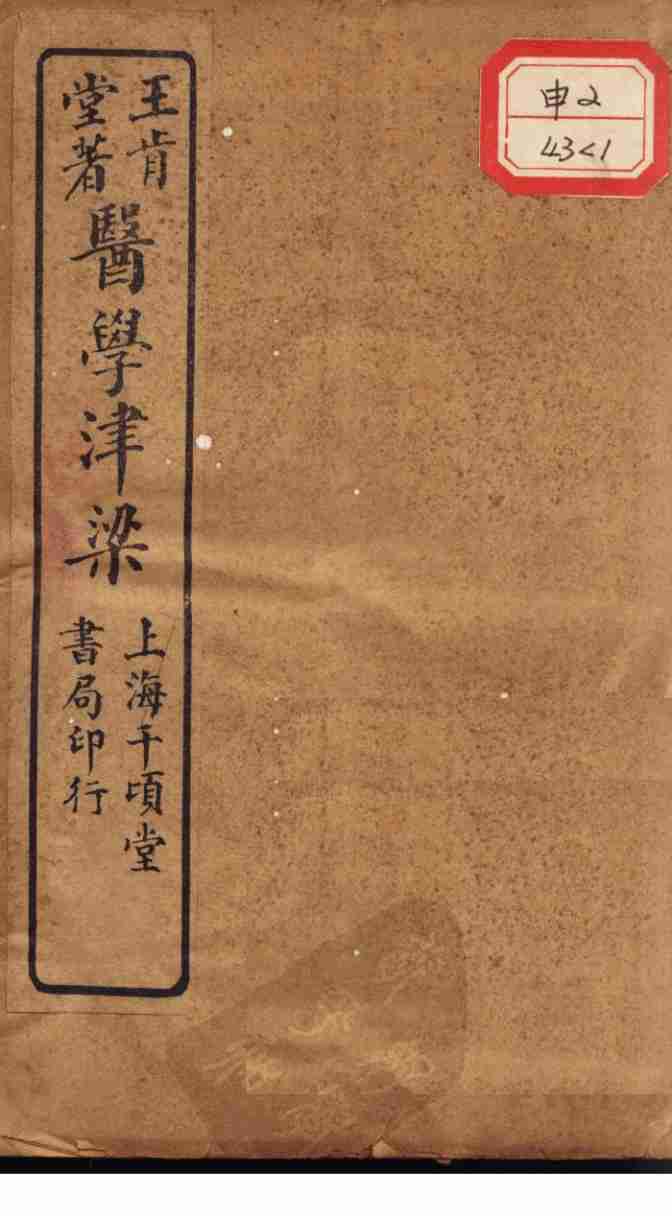 王肯
堂著
醫學津梁
上海千頃堂
書局印行
申2
43<1